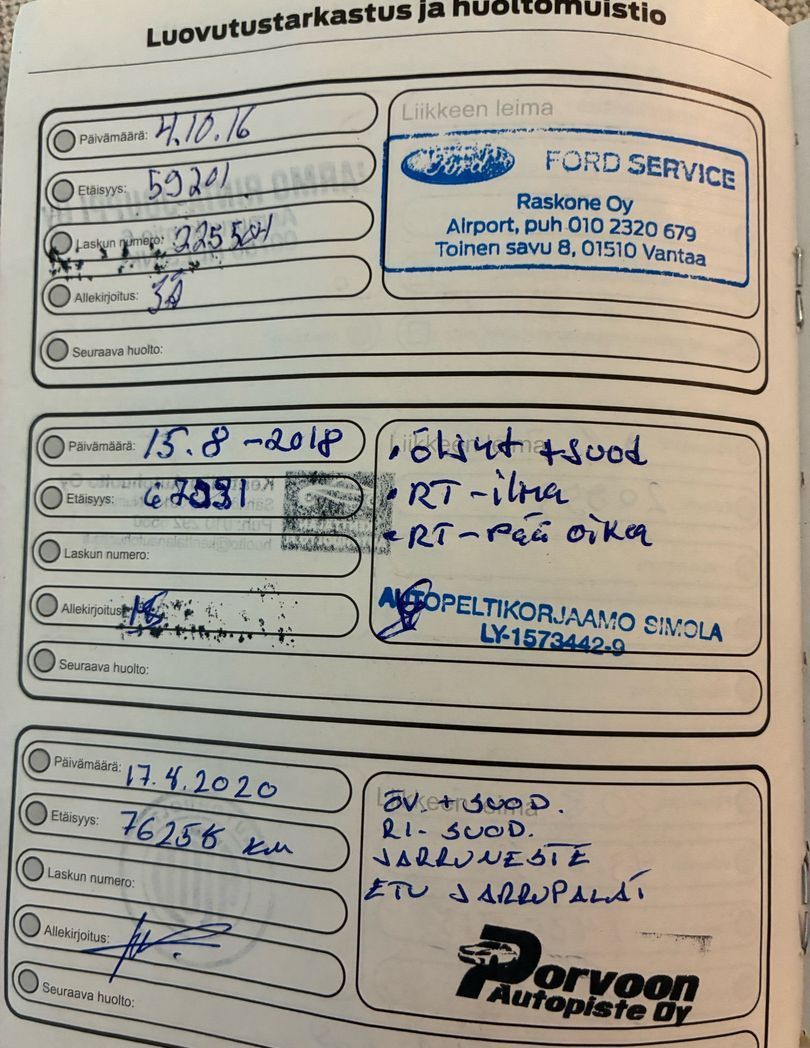 Luovutustarkastus ja huoltomuistio
Päivämäärä: 4.10.16
Etäisyys: 59201
Laskun numero:
Allekirjoitus:
Seuraava huolto:
Liikkeen leima
Ford FORD SERVICE
Raskone Oy
Airport, puh 010 2320 679
Toinen savu 8, 01510 Vantaa
Päivämäärä: 15.8-2018
Etäisyys:
Laskun numero:
Allekirjoitus:
Seuraava huolto:
Liikkeen leima
• öljyt +suod
• RT-ilma
• RT-pää oikea
AUTOPELTIKORJAAMO SIMOLA
LY-1573442-9
Päivämäärä: 17.8.2020
Etäisyys: 76256 KM
Laskun numero:
Allekirjoitus:
Seuraava huolto:
Liikkeen leima
ÖV. + SUOD.
RI- SUOD.
JARRUNESTE
ETU JARRUPALAT
Porvoon
Autopiste Oy